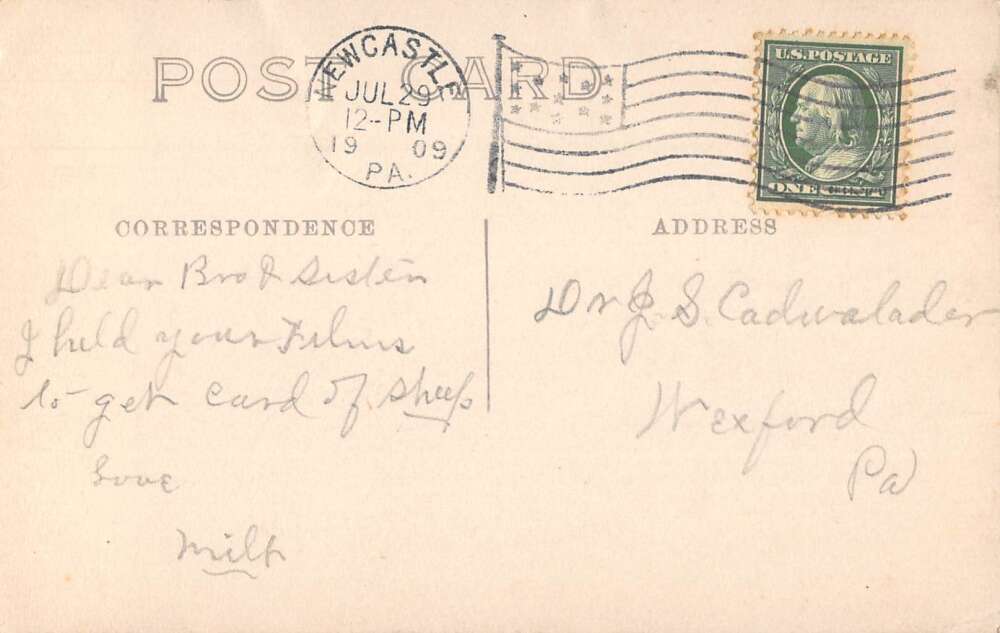 POST CARD
NEWCASTLE
JUL 29
12-PM
19 09
PA.
U.S. POSTAGE
ONE CENT
CORRESPONDENCE
ADDRESS
Dear Bro & Sister
I held your Films
to get card of sheep
Love
Milt
Dr J. S. Cadwalader
Wexford
Pa